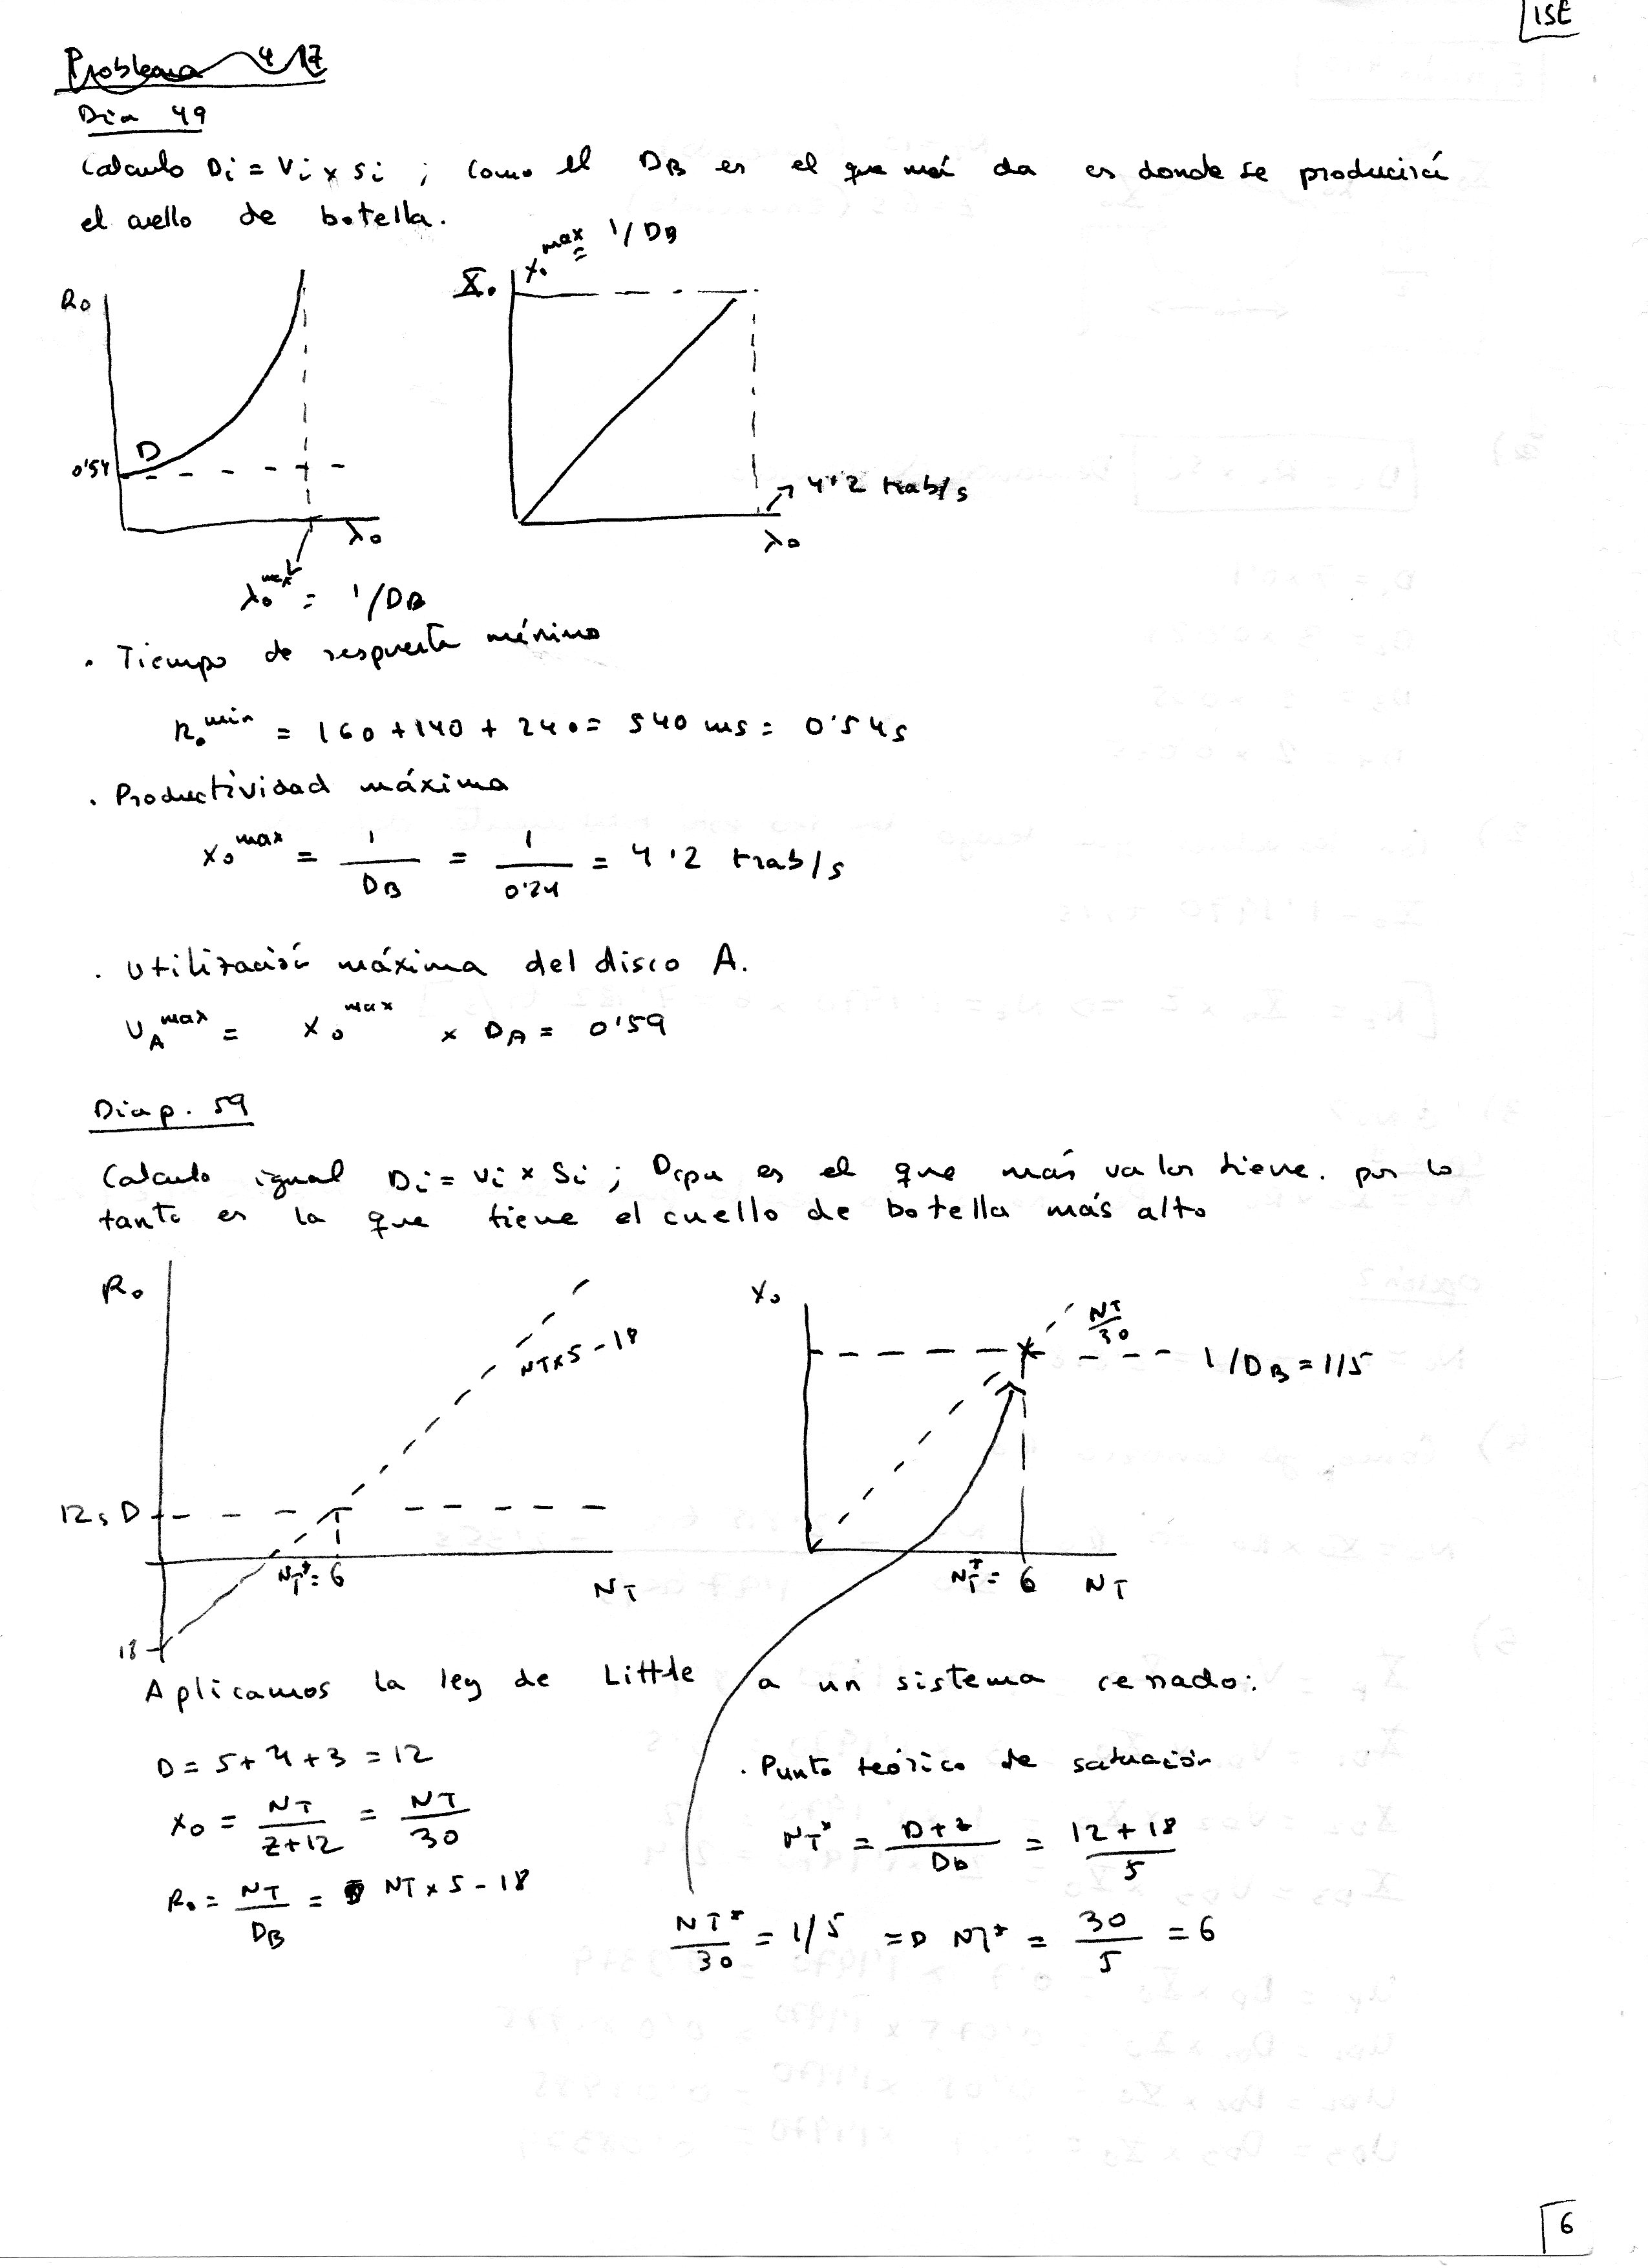 ISE
Problema 4 17
Dia 49
Calculo Di = Vi x Si ; como el DB es el que más da es donde se producirá
el cuello de botella.
R0
D
0'54
λ0
λ0 max = 1/DB
X0
X0 max = 1/DB
4'2 trab/s
λ0
· Tiempo de respuesta mínimo
R0 min = 160 + 140 + 240 = 540 ms = 0'54 s
· Productividad máxima
X0 max = 1/DB = 1/0'24 = 4'2 trab/s
· Utilización máxima del disco A.
UA max = X0 max x DA = 0'59
Diap. 59
Calculo igual Di = Vi x Si ; Dcpu es el que más valor tiene. por lo
tanto es la que tiene el cuello de botella más alto
R0
NT x 5 - 18
12s D
NT* = 6
NT
18
X0
NT/30
1/DB = 1/5
NT* = 6
NT
Aplicamos la ley de Little a un sistema cerrado:
D = 5 + 4 + 3 = 12
X0 = NT/Z+12 = NT/30
R0 = NT/DB = NT x 5 - 18
· Punto teórico de saturación
NT* = D+Z/Db = 12+18/5
NT*/30 = 1/5 => NT* = 30/5 = 6
6